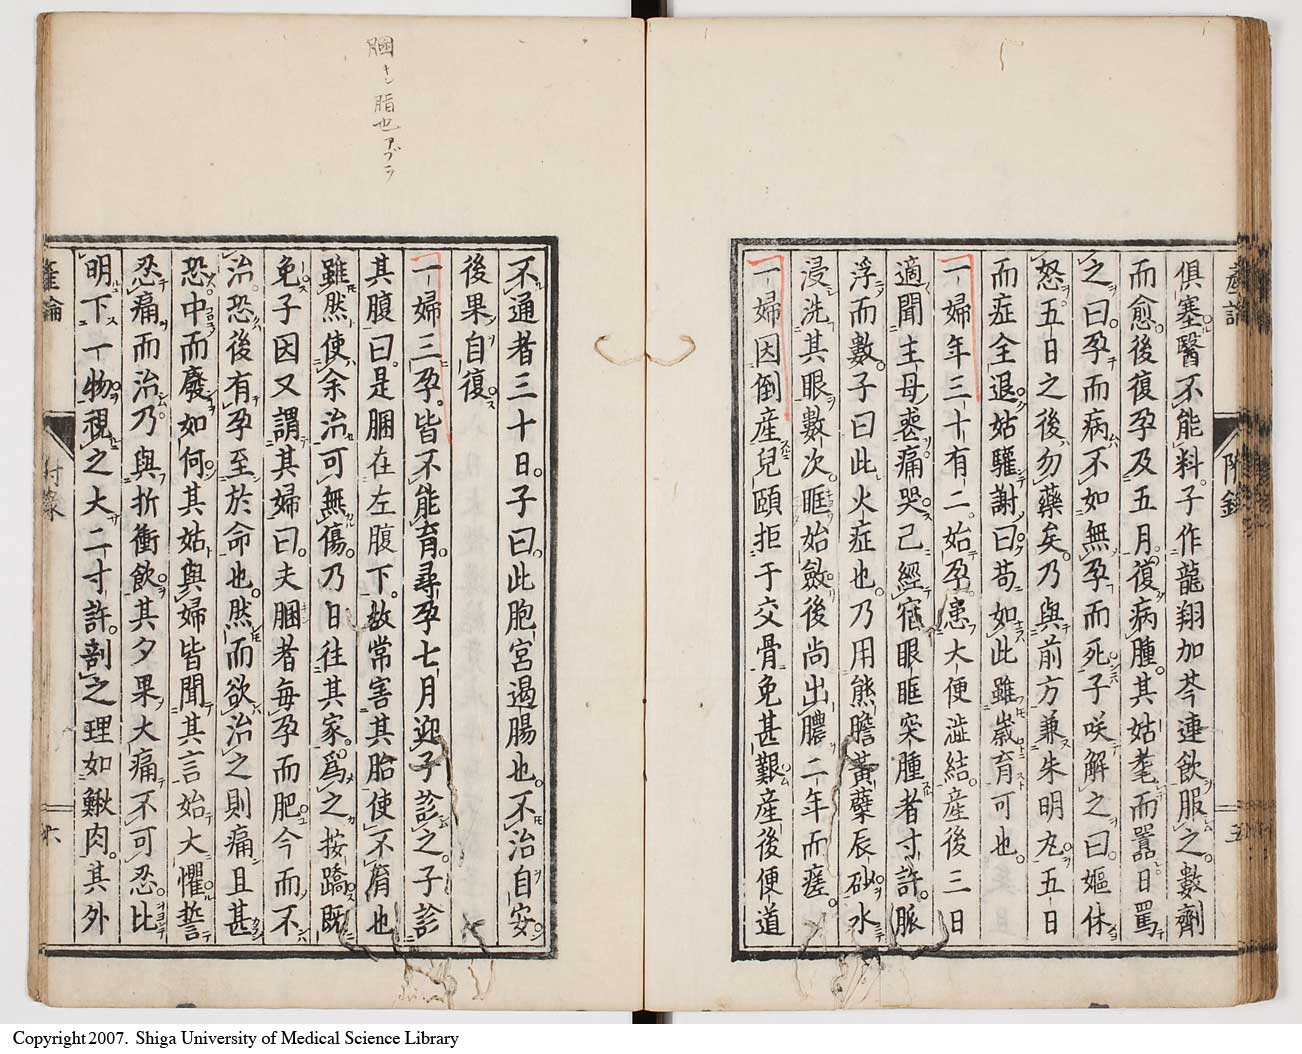 俱塞醫不能料子作龍翔加芩連飲服之數劑
而愈後復孕及五月復病腫其姑耄而嚚日罵
之曰孕而病不如無孕而死子咲解之曰嫗休
怒五日之後勿藥矣乃與前方兼朱明丸五日
而症全退姑驩謝曰苟如此雖歲育可也
一婦年三十有二始孕患大便澁結產後三日
適聞主母喪痛哭已經宿眼眶突腫者寸許脈
浮而數子曰此火症也乃用熊膽黃蘗辰砂水
浸洗其眼數次眶始斂後尚出膿二年而瘥
一婦因倒產兒頤拒于交骨免甚艱產後便道
五
不通者三十日子曰此胞宮遏腸也不治自安
後果自復
一婦三孕皆不能育尋孕七月迎子診之子診
其腹曰是膕在左腹下故常害其胎使不育也
雖然使余治可無傷乃日往其家為之按蹻既
免子因又謂其婦曰夫膕者每孕而肥今而不
治恐後有孕至於命也然而欲治之則痛且甚
恐中而廢如何其姑與婦皆聞其言始大懼誓
忍痛而治乃與折衝飲其夕果大痛不可忍比
明下一物視之大二寸許剖之理如鰍肉其外
產論
附錄
六
膕 キン 脂也アブラ
Copyright 2007. Shiga University of Medical Science Library